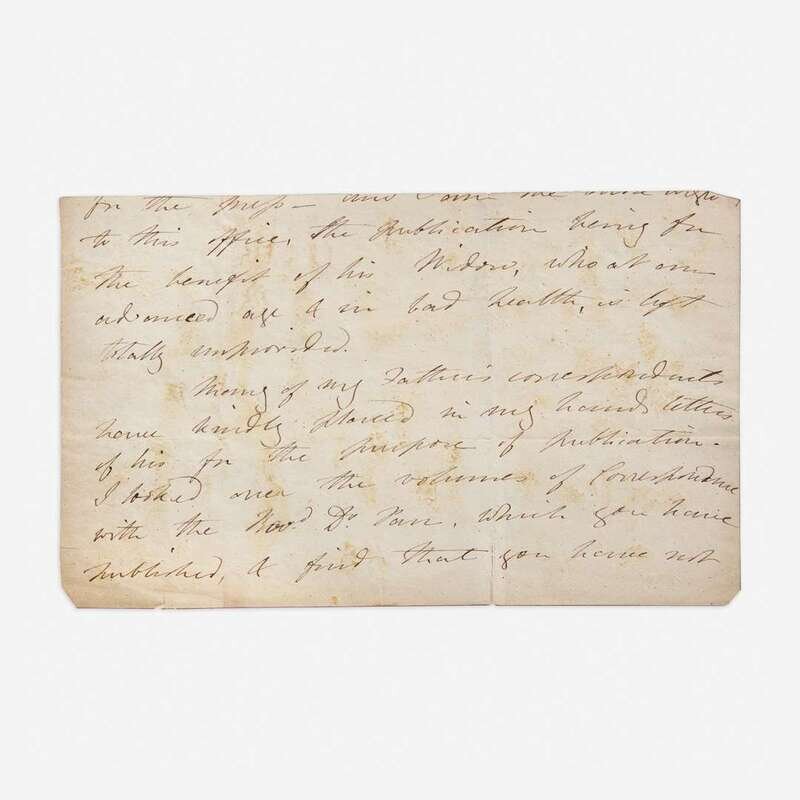 for the Press — and I am
to this office, the Publication being for
the benefit of his Widow, who at an
advanced age & in bad health, is left
totally unprovided.
Many of my Father's correspondents
have kindly placed in my hands letters
of his for the purpose of publication -
I looked over the volumes of Correspondence
with the Revd. Dr. Parr, which you have
published, & find that you have not